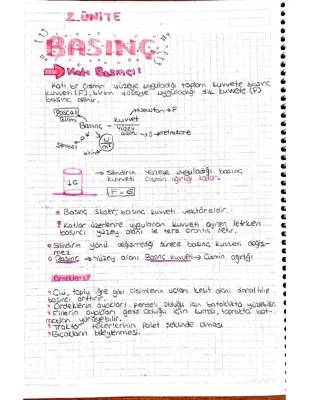 2. ÜNİTE
BASINÇ
Katı Basıncı:
Katı bir cismin yüzeye uyguladığı toplam kuvvete basınç
kuvveti (F), birim yüzeye uyguladığı dik kuvvete (P)
basınç denir.
Pascal
Birimi
Newton → F
Basınç = kuvvet
yüzey
alanı → S → metrekare
P
Sembol
birim
N/m²
G
→ Silindirin yüzeye uyguladığı basınç
kuvveti cismin ağırlığı kadar.
F = G
Basınç skaler, basınç kuvveti vektöreldir.
Katılar üzerlerine uygulanan kuvveti aynen iletirken
basıncı yüzey alanı ile ters orantılı iletir.
Silindirin yönü değişmediği sürece basınç kuvveti değiş-
mez
Basınç → Yüzey alanı Basınç kuvveti → Cismin ağırlığı
Örnekler:
Çivi, toplu iğne gibi cisimlerin uçları kesit alanı daraltılıp
basıncı arttırır.
Ördeklerin ayakları perdeli olduğu için bataklıkta yüzebilir.
Fillerin ayakları geniş olduğu için kumda, toprakta bat-
madan yürüyebilir.
Traktör tekerlerinin Palet şeklinde olması
Bıçakların bileylenmesi.